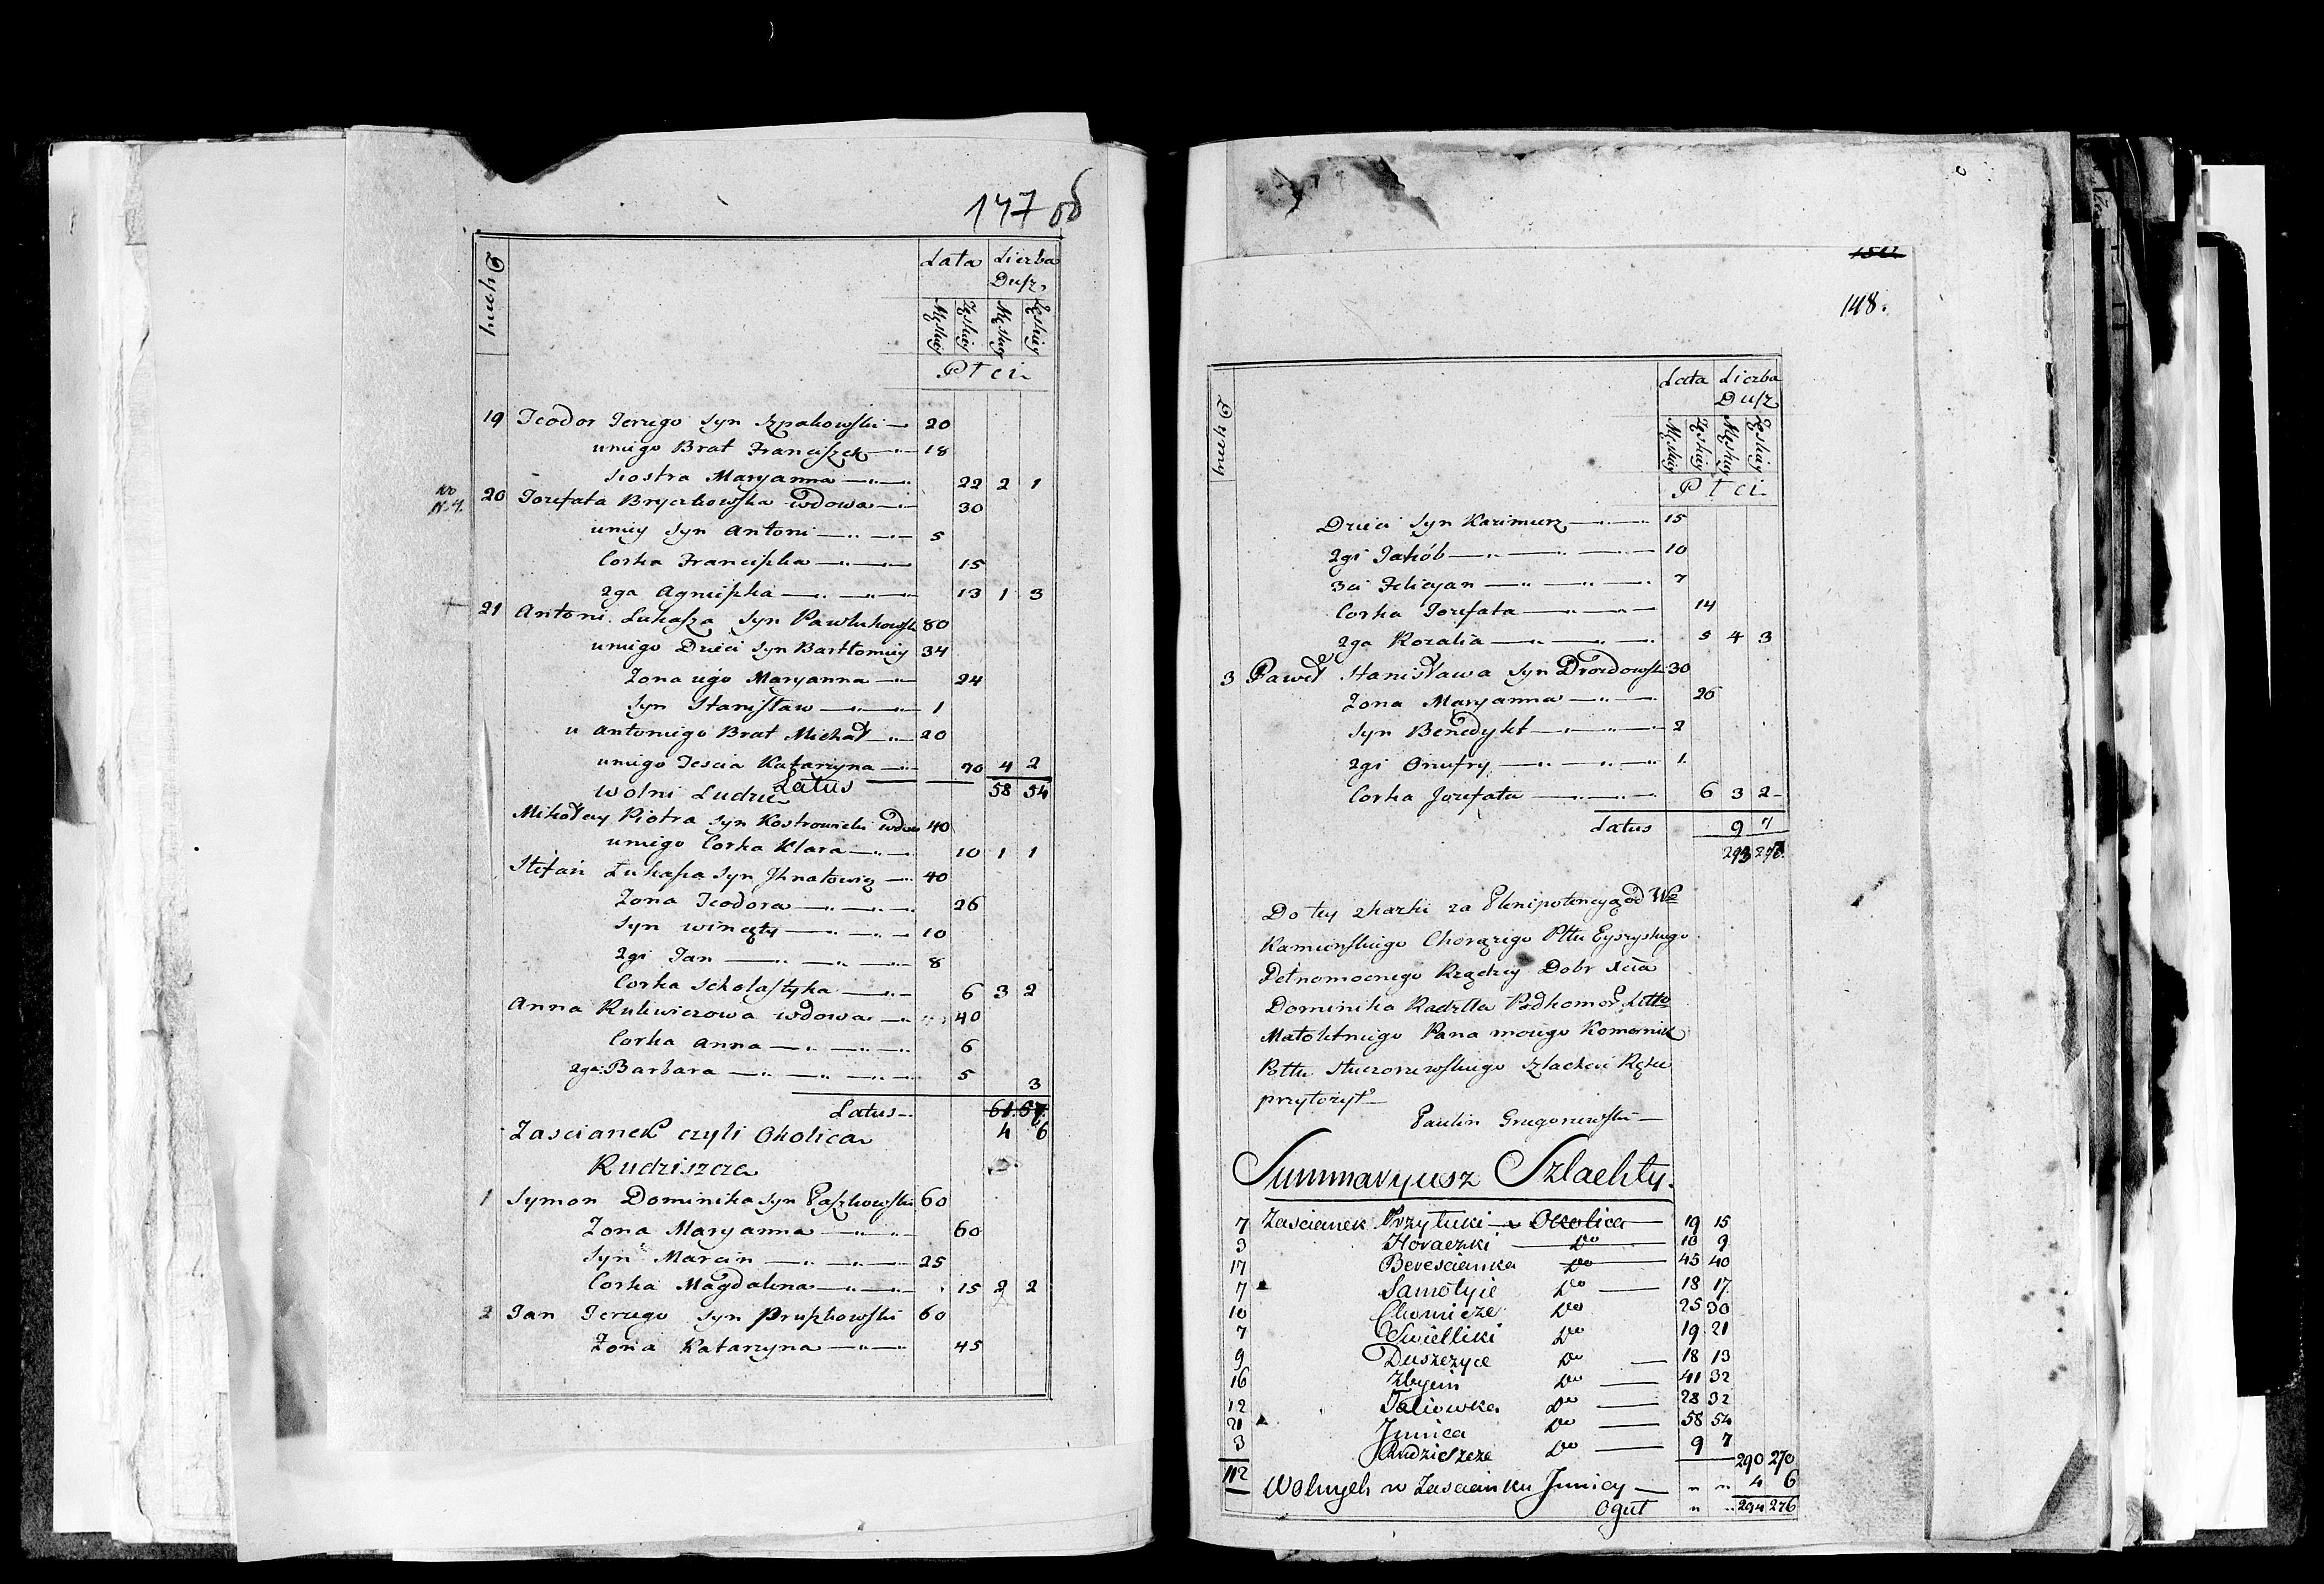 147 об
Dymy
Lata Liczba
Dusz
Męskiey Żęskiey Męskiey Żęskiey
Płci
19 Teodor Jerzego Syn Szpakowski 20
u niego Brat Franciszek 18
Siostra Maryanna 22 2 1
No
N. 4.
20 Jozefata Bryczkowska wdowa 30
u niey Syn Antoni 5
Corka Franciszka 15
2ga Agnieszka 13 1 3
21 Antoni Łukasza Syn Pawlukowski 80
u niego Dzieci Syn Bartłomiey 34
Zona iego Maryanna 24
Syn Stanisław 1
u Antoniego Brat Michał 20
u niego Tescia Katarzyna 70 4 2
Latus 58 54
Wolni Ludzie
Mikołay Piotra Syn Kostrowicki wdow 40
u niego Corka Klara 10 1 1
Stefan Łukasza Syn Jhnatowicz 40
Zona Teodora 26
Syn Wincęty 10
2gi Jan 8
Corka Scholastyka 6 3 2
Anna Kulwiczowa wdowa 40
Corka Anna 6
2ga Barbara 5 3
Latus 61 57
4 6
Zascianek czyli Okolica
Rudziszcza
1 Symon Dominika Syn Paszkowski 60
Zona Maryanna 60
Syn Marcin 25
Corka Magdalena 15 2 2
2 Jan Jerzego Syn Pruszkowski 60
Zona Katarzyna 45
148.
Dymy
Lata Liczba
Dusz
Męskiey Żęskiey Męskiey Żęskiey
Płci
Dzieci Syn Kazimierz 15
2gi Jakób 10
3ci Felicyan 7
Corka Jozefata 14
2ga Rozalia 5 4 3
3 Paweł Stanisława Syn Drozdowski 30
Zona Maryanna 26
Syn Benedykt 2
2gi Onufry 1
Corka Jozefata 6 3 2
Latus 9 7
Do tey skazki za Plenipotencyą od We
Kamienskiego Chorązego Pttu Eyszyskiego
Pełnomocnego Rządzcy Dobr Xcia
Dominika Radzlla Podkomor Littо
Małoletniego Pana moiego Komornik
Pottu Słuczorzewskiego Szlachcic Rękę
przyłożył
Paulin Gregorzewski
Summaryusz Szlachty.
7 Zascianek Przyłuki Okolica 19 15
3 Horaczki Do 10 9
17 Berescianka Do 45 40
7 Samotyie Do 18 17
10 Chomicze Do 25 30
7 Swielliki Do 19 21
9 Duszczyce Do 18 13
16 Zbyin Do 41 32
12 Taliowka Do 28 32
21 Junica Do 58 54
3 Rudziszcze Do 9 7
290 270
112 Wolnych w Zascianku Junicy 4 6
Oguł 294 276